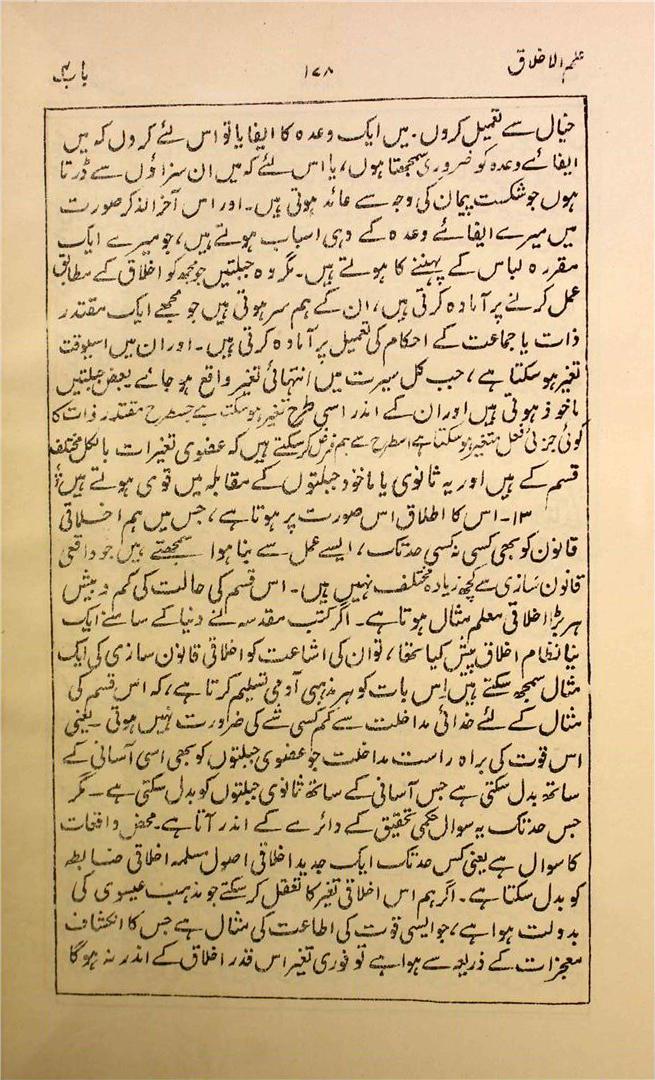 علم الاخلاق ۱۷۸ باب
خیال سے تعمیل کروں۔ میں ایک وعدہ کا ایفا یا تو اس لئے کروں کہ میں
ایفائے وعدہ کو ضروری سمجھتا ہوں، یا اس لئے کہ میں ان سزاؤں سے ڈرتا
ہوں جو شکست پیمان کی وجہ سے عائد ہوتی ہیں۔ اور اس آخر الذکر صورت
میں میرے ایفائے وعدہ کے وہی اسباب ہوتے ہیں، جو میرے ایک
مقررہ لباس کے پہننے کا ہوتے ہیں۔ مگر وہ جبلتیں جو مجھ کو اخلاق کے مطابق
عمل کرنے پر آمادہ کرتی ہیں، ان کے ہم سر ہوتی ہیں جو مجھے ایک مقتدر
ذات یا جماعت کے احکام کی تعمیل پر آمادہ کرتی ہیں۔ اور ان میں اسیوقت
تغیر ہو سکتا ہے، جب کل سیرت میں انتہائی تغیر واقع ہو جائے بعض جبلتیں
ماخوذ ہوتی ہیں اور ان کے اندر اسی طرح تغیر ہو سکتا ہے جسطرح مقتدر ذات کا
کوئی جزئی فعل متغیر ہو سکتا ہے اسطرح سے ہم فرض کر سکتے ہیں کہ عضوی تغیرات بالکل مختلف
قسم کے ہیں اور یہ ثانوی یا ماخوذ جبلتوں کے مقابلہ میں قوی ہوتے ہیں
۱۳۔ اس کا اطلاق اس صورت پر ہوتا ہے، جس میں ہم اخلاقی
قانون کو بھی کسی نہ کسی حد تک، ایسے عمل سے بنا ہوا سمجھتے ہیں جو واقعی
قانون سازی سے کچھ زیادہ مختلف نہیں ہیں۔ اس قسم کی حالت کی کم و بیش
ہر بڑا اخلاقی معلم مثال ہوتا ہے۔ اگر کتب مقدسہ نے دنیا کے سامنے ایک
نیا نظام اخلاق پیش کیا تھا، تو ان کی اشاعت کو اخلاقی قانون سازی کی ایک
مثال سمجھ سکتے ہیں اس بات کو ہر مذہبی آدمی تسلیم کرتا ہے، کہ اس قسم کی
مثال کے لئے خدائی مداخلت سے کم کسی شے کی ضرورت نہیں ہوتی۔ یعنی
اس قوت کی براہ راست مداخلت جو عضوی جبلتوں کو بھی اسی آسانی کے
ساتھ بدل سکتی ہے جس آسانی کے ساتھ ثانوی جبلتوں کو بدل سکتی ہے۔ مگر
جس حد تک یہ سوال حکمی تحقیق کے دائرے کے اندر آتا ہے۔ محض واقعات
کا سوال ہے یعنی کس حد تک ایک جدید اخلاقی اصول مسلمہ اخلاقی ضابطہ
کو بدل سکتا ہے۔ اگر ہم اس اخلاقی تغیر کا تعقل کر سکتے جو مذہب عیسوی کی
بدولت ہوا ہے، جو ایسی قوت کی اطاعت کی مثال ہے جس کا انکشاف
معجزات کے ذریعہ سے ہوا ہے تو فوری تغیر اس قدر اخلاق کے اندر نہ ہوگا